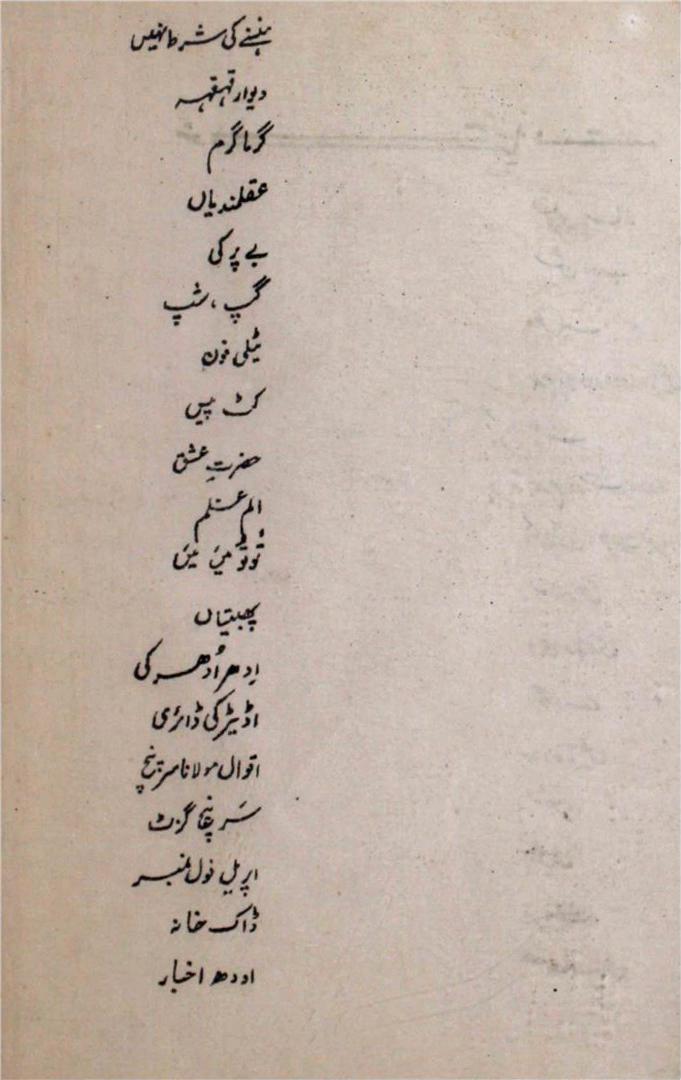 ہنسنے کی شرط نہیں
دیوار قہقہہ
گرما گرم
عقلمندیاں
بے پر کی
گپ، شپ
ٹیلی فون
کٹ پیس
حضرتِ عشق
الم غلم
تُو تُو مَیں مَیں
پھبتیاں
اِدھر اُدھر کی
اڈیٹر کی ڈائری
اقوال مولانا سرپنچ
سَرپنچ گزٹ
اپریل فول نمبر
ڈاک خانہ
اودھ اخبار